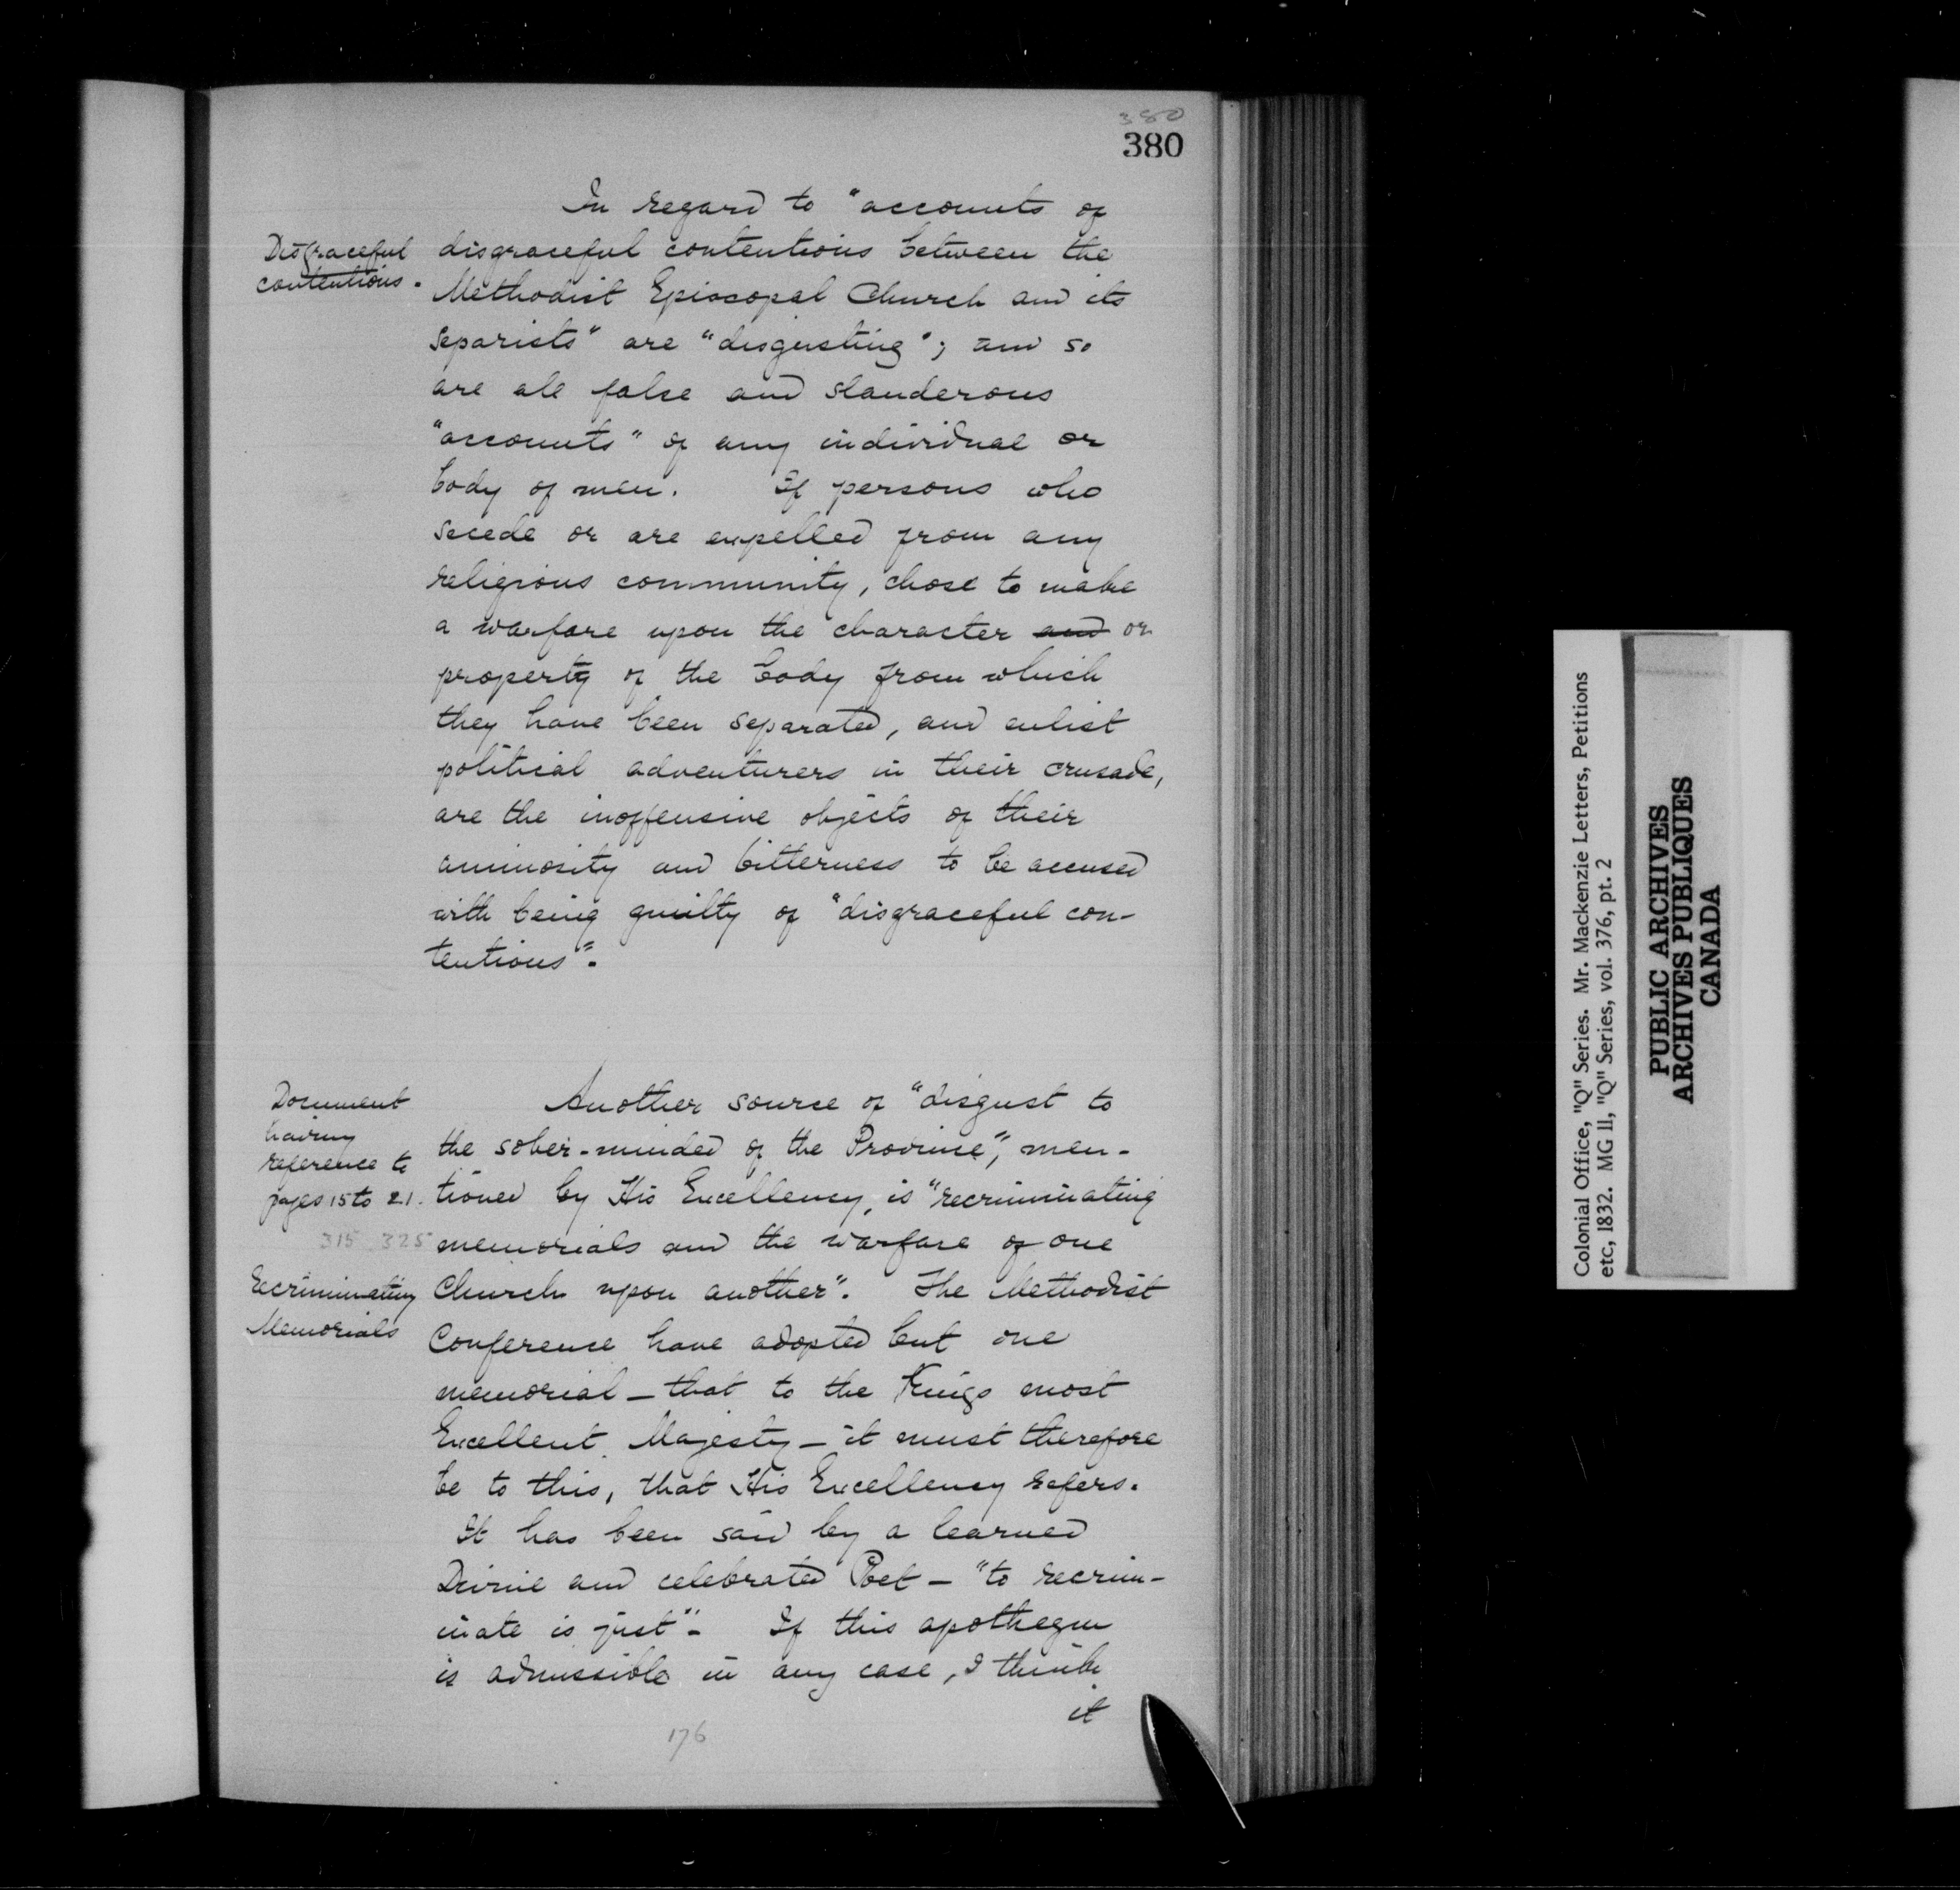 380
380
In regard to "accounts of
Disgraceful
contentions.
disgraceful contentions between the
Methodist Episcopal Church and its
separists" are "disgusting"; and so
are all false and slanderous
"accounts" of any individual or
body of men. If persons who
secede or are expelled from any
religious community, chose to make
a warfare upon the character and or
property of the body from which
they have been separated, and enlist
political adventurers in their crusade,
are the inoffensive objects of their
animosity and bitterness to be accused
with being guilty of "disgraceful con-
tentions".
Document
having
reference to
pages 15 to 21.
315 325
Recriminating
Memorials
Another source of "disgust to
the sober-minded of the Province", men-
tioned by His Excellency, is "recriminating
memorials and the warfare of one
Church upon another". The Methodist
Conference have adopted but one
memorial - that to the Kings most
Excellent Majesty - it must therefore
be to this, that His Excellency refers.
It has been said by a learned
Divine and celebrated Poet - "to recrim-
inate is just". If this apothegm
is admissible in any case, I think
it
176
Colonial Office, "Q" Series. Mr. Mackenzie Letters, Petitions
etc, 1832. MG 11, "Q" Series, vol. 376, pt. 2
PUBLIC ARCHIVES
ARCHIVES PUBLIQUES
CANADA